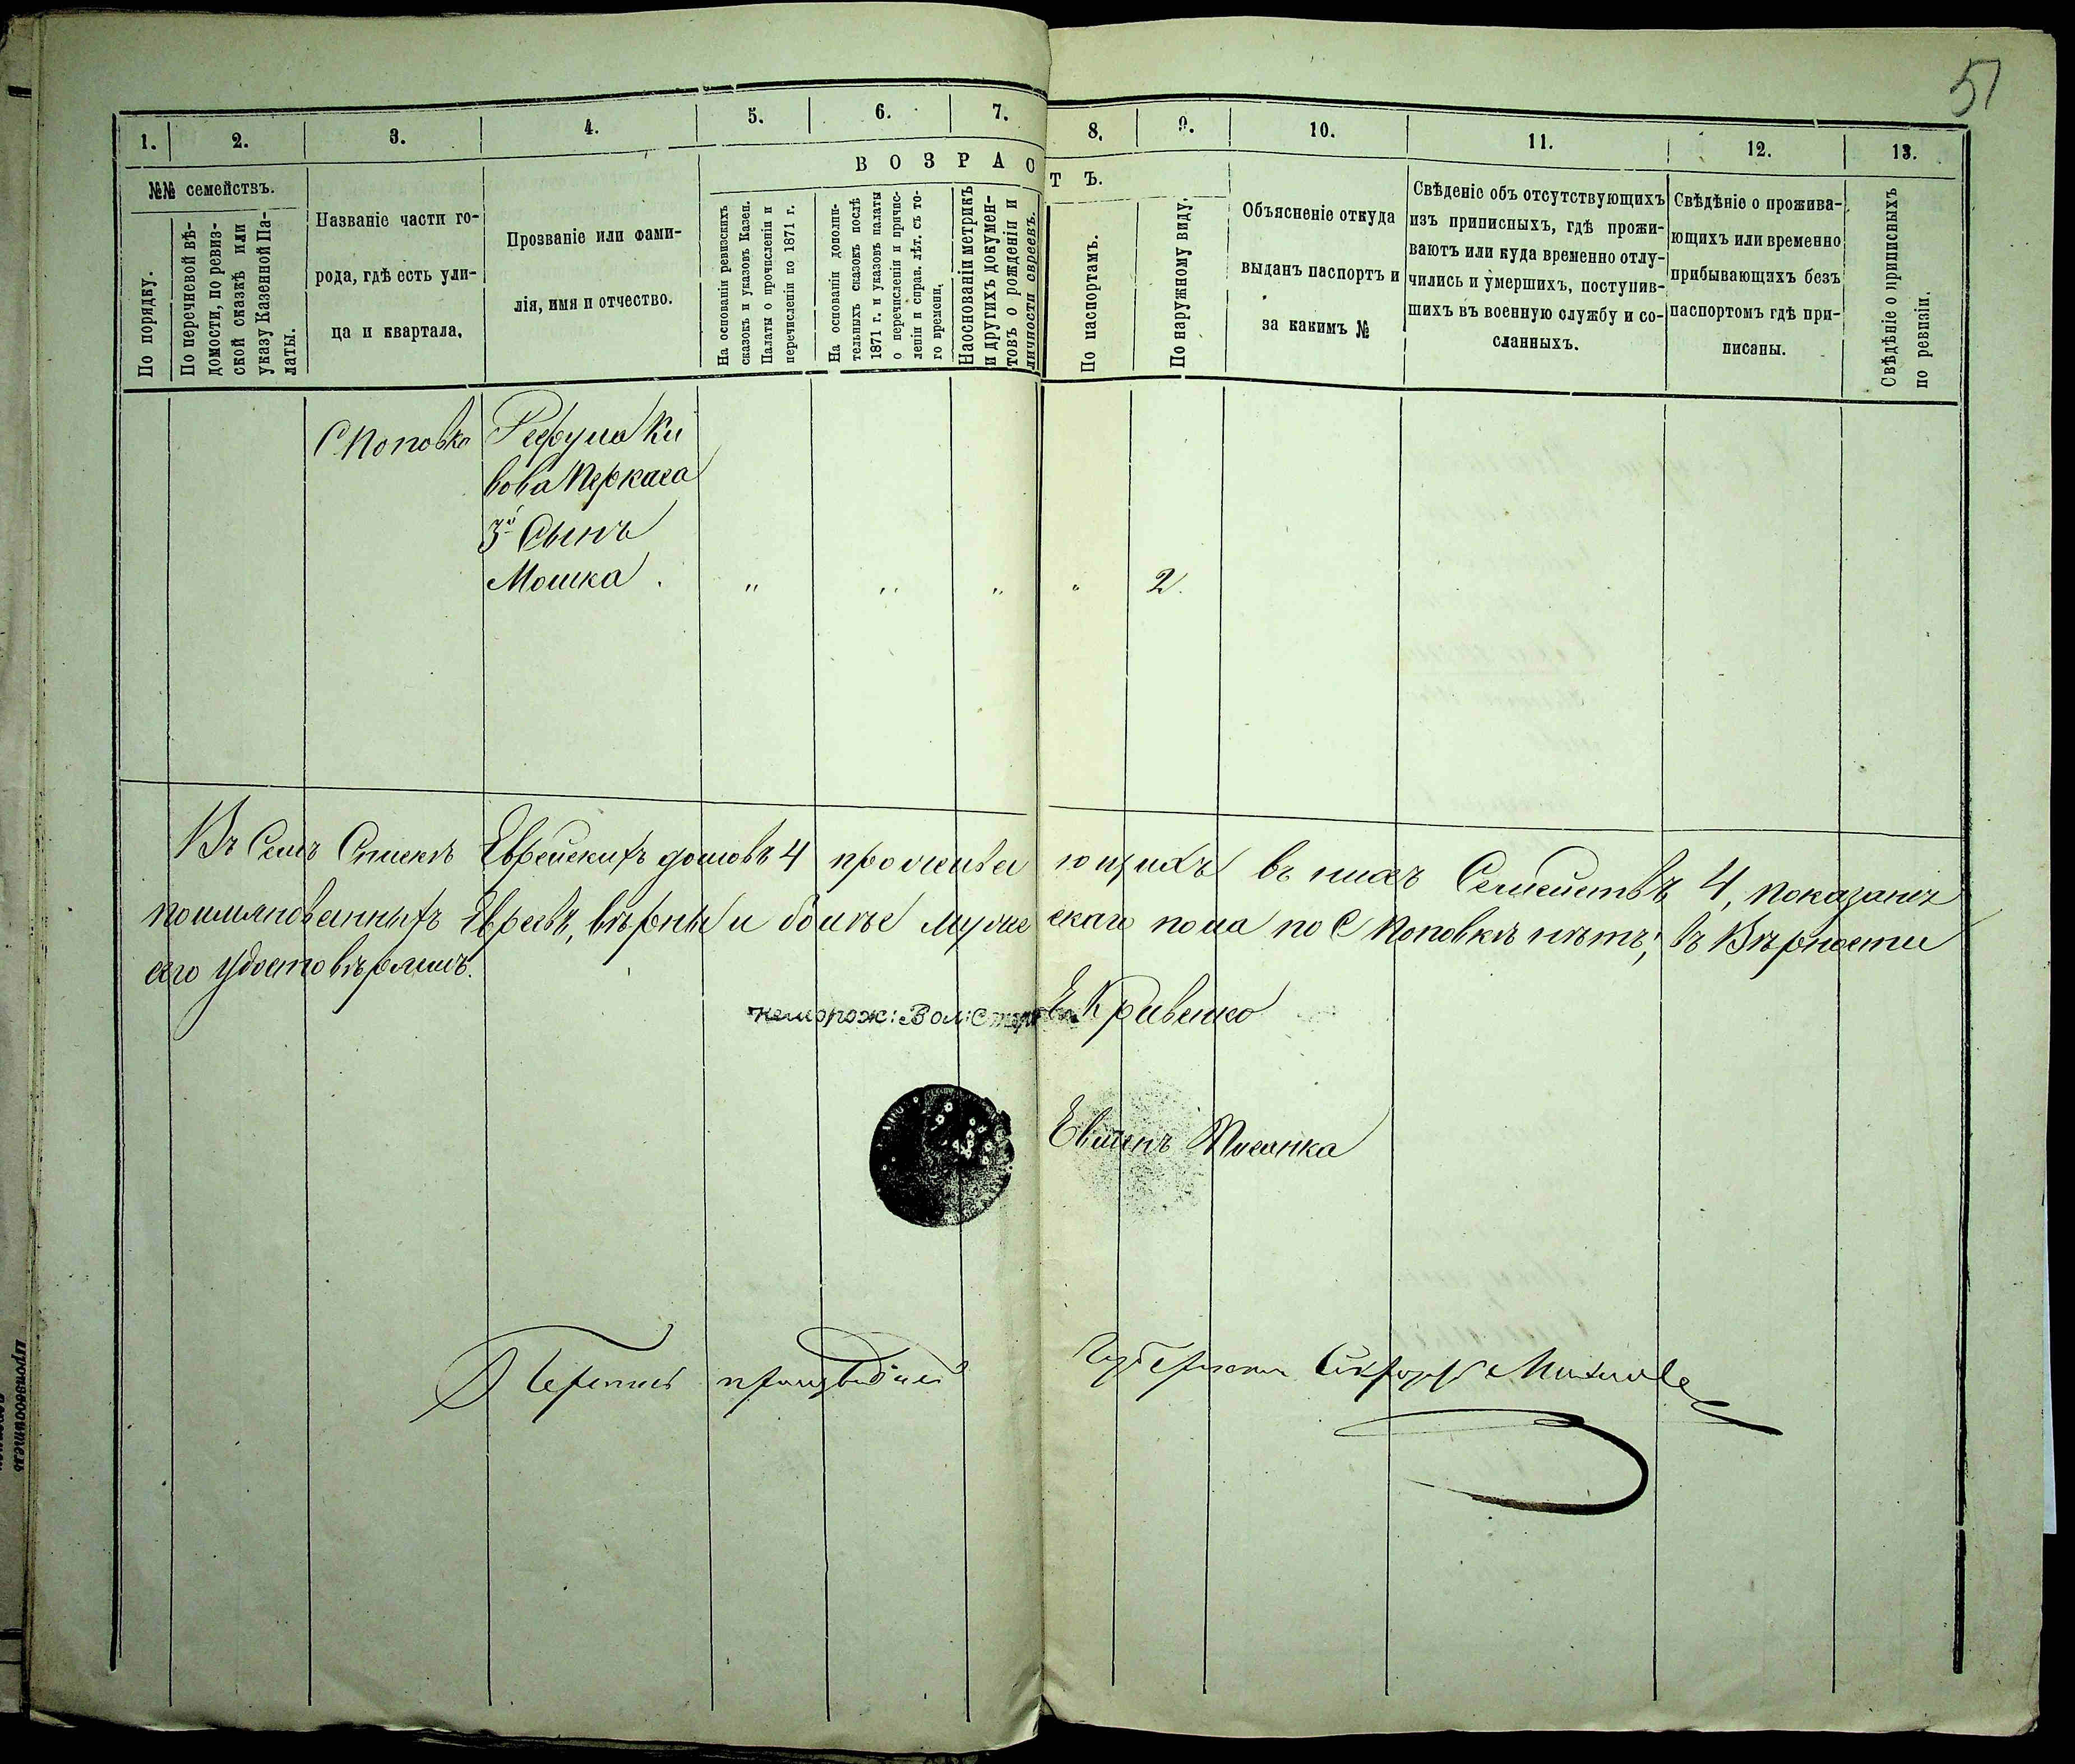 51
1. 2. 3. 4. 5. 6. 7. 8. 9. 10. 11. 12. 13.
№№ семействъ.
По порядку.
По перечневой вѣ-
домости, по ревиз-
ской сказкѣ или
указу Казенной Па-
латы.
Названіе части го-
рода, гдѣ есть ули-
ца и квартала.
Прозваніе или фами-
лія, имя и отчество.
ВОЗРАСТЪ.
На основаніи ревизскихъ
сказокъ и указовъ Казен.
Палаты о прочисленіи и
перечисленіи по 1871 г.
На основаніи дополни-
тельныхъ сказокъ послѣ
1871 г. и указовъ палаты
о перечисленіи и причис-
леніи и справ. лѣт. съ то-
го времени.
На основаніи метрикъ
и другихъ докумен-
товъ о рожденіи и
личности евреевъ.
По паспортамъ.
По наружному виду.
Объясненіе откуда
выданъ паспортъ и
за какимъ №
Свѣденіе объ отсутствующихъ
изъ приписныхъ, гдѣ прожи-
ваютъ или куда временно отлу-
чились и умершихъ, поступив-
шихъ въ военную службу и со-
сланныхъ.
Свѣдѣніе о прожива-
ющихъ или временно
прибывающихъ безъ
паспортомъ гдѣ при-
писаны.
Свѣдѣніе о приписныхъ
по ревизіи.
С Поповка
3й Сынъ
Мошка . " " " " 2.
Въ Семъ Спискѣ Еврейскихъ домовъ 4 проживающихъ въ нихъ Семействъ 4, показаніе
поимянованныхъ Евреевъ, вѣрны и болѣе мужескаго пола по С Поповкѣ нѣтъ, въ Вѣрности
сего удостовѣряемъ.
Вол: Е Кривенко
Писанка
Губернскій Секретарь